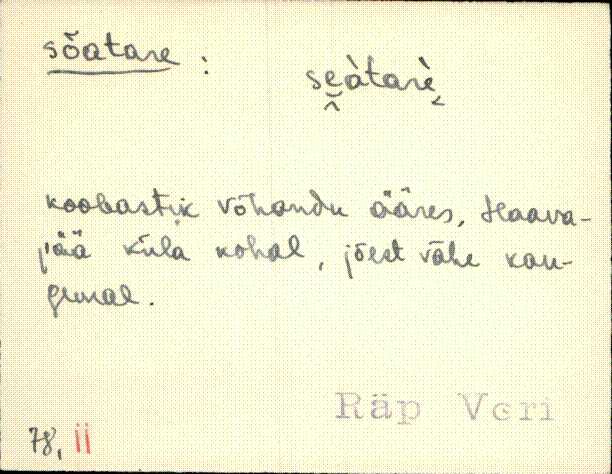 sõatare :
seàtarè
koobastik võhandu ääres, Haava-
pää küla kohal, jõest vähe kau-
gemal.
78, ii
Räp Veri